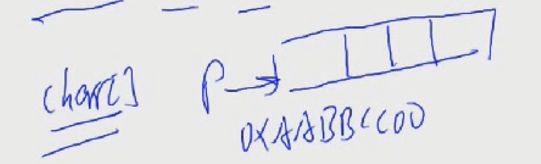 char[] P
0XAABBCC00